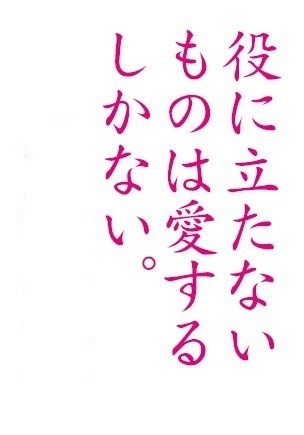 役に立たない
ものは愛する
しかない。